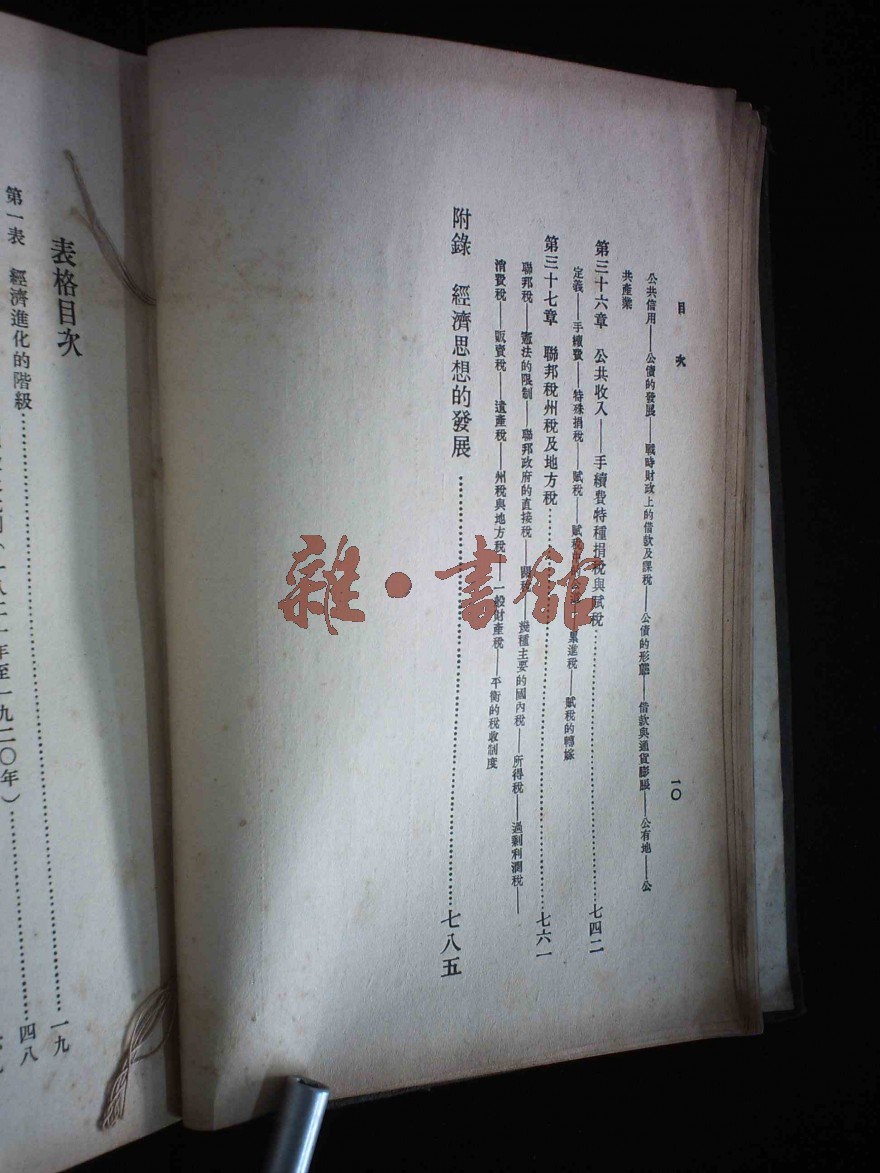 目次
一〇
公共信用——公債的發展——戰時財政上的借款及課稅——公債的形態——借款與通貨膨脹——公有地——公
共產業
第三十六章 公共收入——手續費特種捐稅與賦稅……七四二
定義——手續費——特殊捐稅——賦稅——賦稅 累進稅——賦稅的轉嫁
第三十七章 聯邦稅州稅及地方稅……七六一
聯邦稅——憲法的限制——聯邦政府的直接稅——關稅——幾種主要的國內稅——所得稅——過剩利潤稅——
消費稅——販賣稅——遺產稅——州稅與地方稅——一般財產稅——平衡的稅收制度
附錄 經濟思想的發展……七八五
表格目次
第一表 經濟進化的階級……一九
年至一九二〇年)……四八
雜·書館